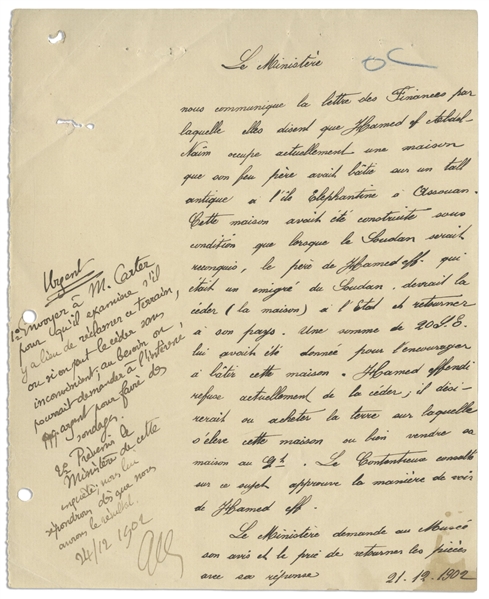 Le Ministère
nous communique la lettre des Finances par
laquelle elles disent que Hamed ef Abdel-
Naïm occupe actuellement une maison
que son feu père avait bâtie sur un tall
antique à l'île Elephantine à Assouan.
Cette maison avait été construite sous
condition que lorsque le Soudan serait
reconquis, le père de Hamed eff. qui
était un emigré du Soudan devrait la
céder (la maison) à l'Etat et retourner
à son pays. Une somme de 20 £.E.
lui avait été donnée pour l'encourager
à bâtir cette maison. Hamed effendi
refuse actuellement de la céder; il dési-
rerait ou acheter la terre sur laquelle
s'élève cette maison ou bien vendre sa
maison au Gt. Le Contentieux consulté
sur ce sujet approuve la manière de voir
de Hamed eff.
Le Ministère demande au Musée
son avis et le prie de retourner les pièces
avec sa réponse 21.12.1902
Urgent
1o Envoyer à M. Carter
pour qu'il examine s'il
y a lieu de réclamer ce terrain,
ou si on peut le céder sans
inconvénient. au besoin on
pourrait demander à l'intéressé
argent pour faire des
sondages.
2o Prévenir le
Ministère de cette
enquête: nous lui
répondrons dès que nous
aurons le résultat.
24/12 1902